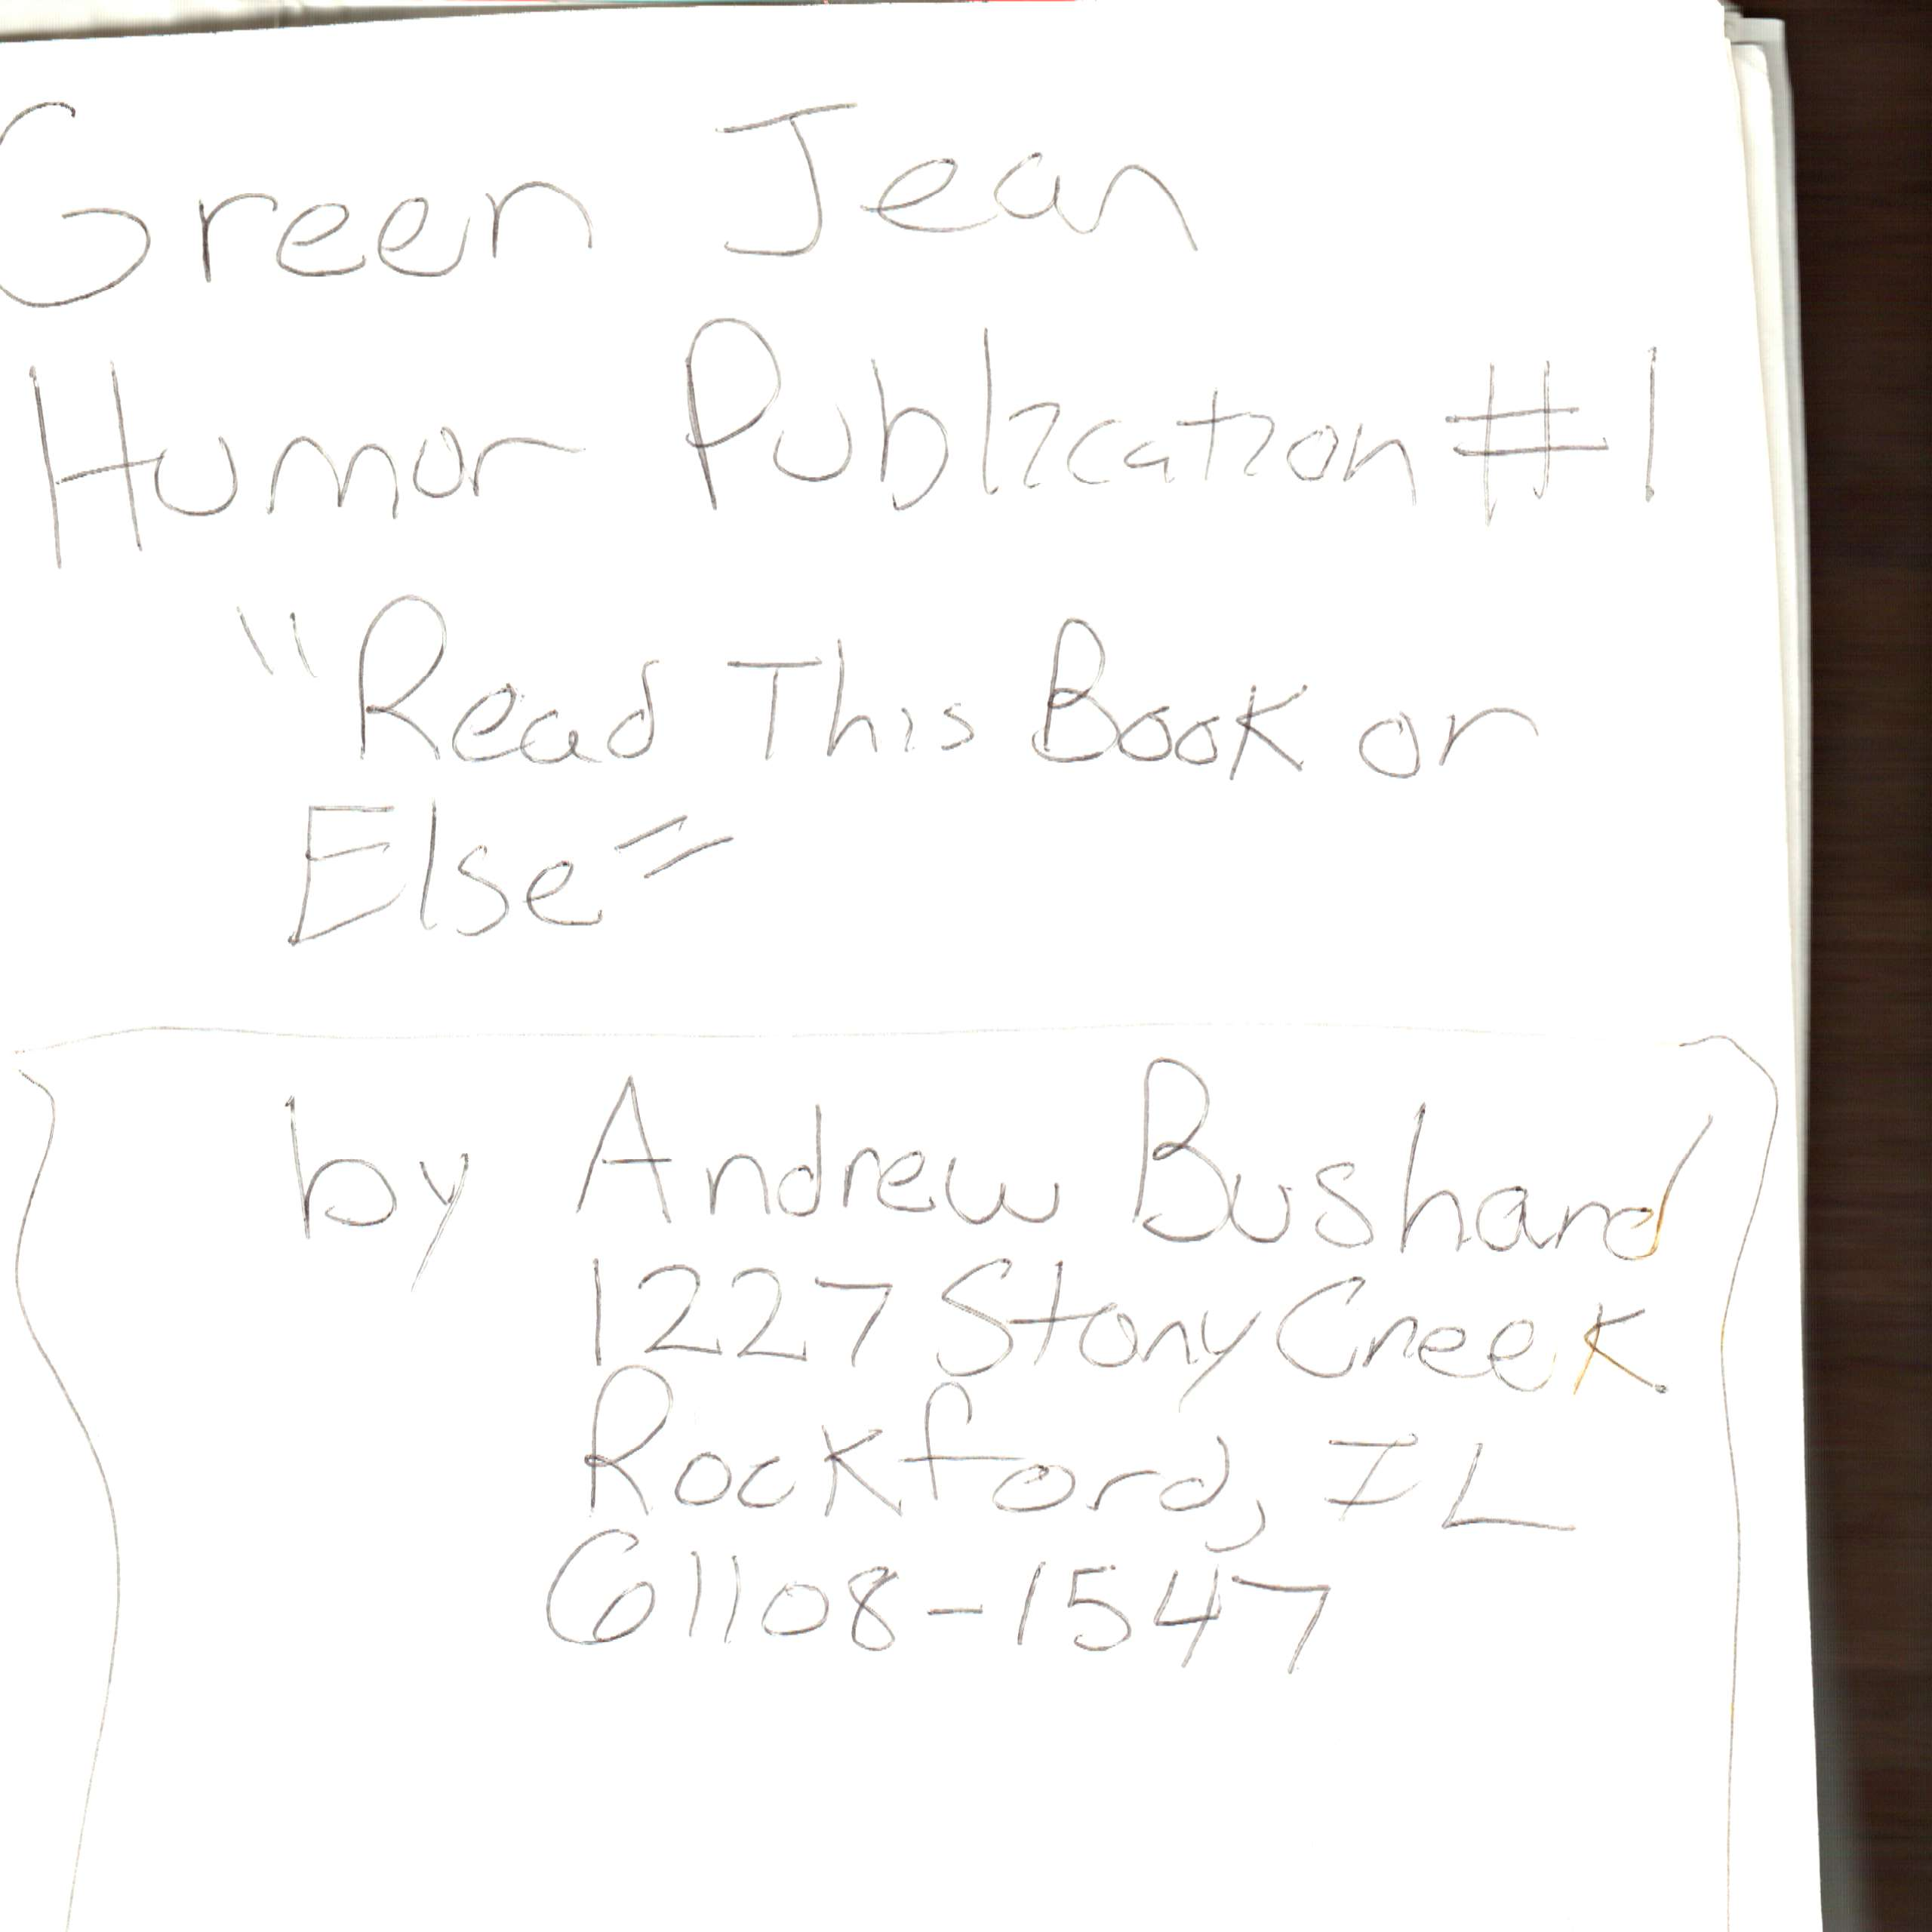 Green Jean
Humor Publication #1
"Read This Book or
Else"
by Andrew Bushard
1227 Stony Creek
Rockford, IL
61108-1547